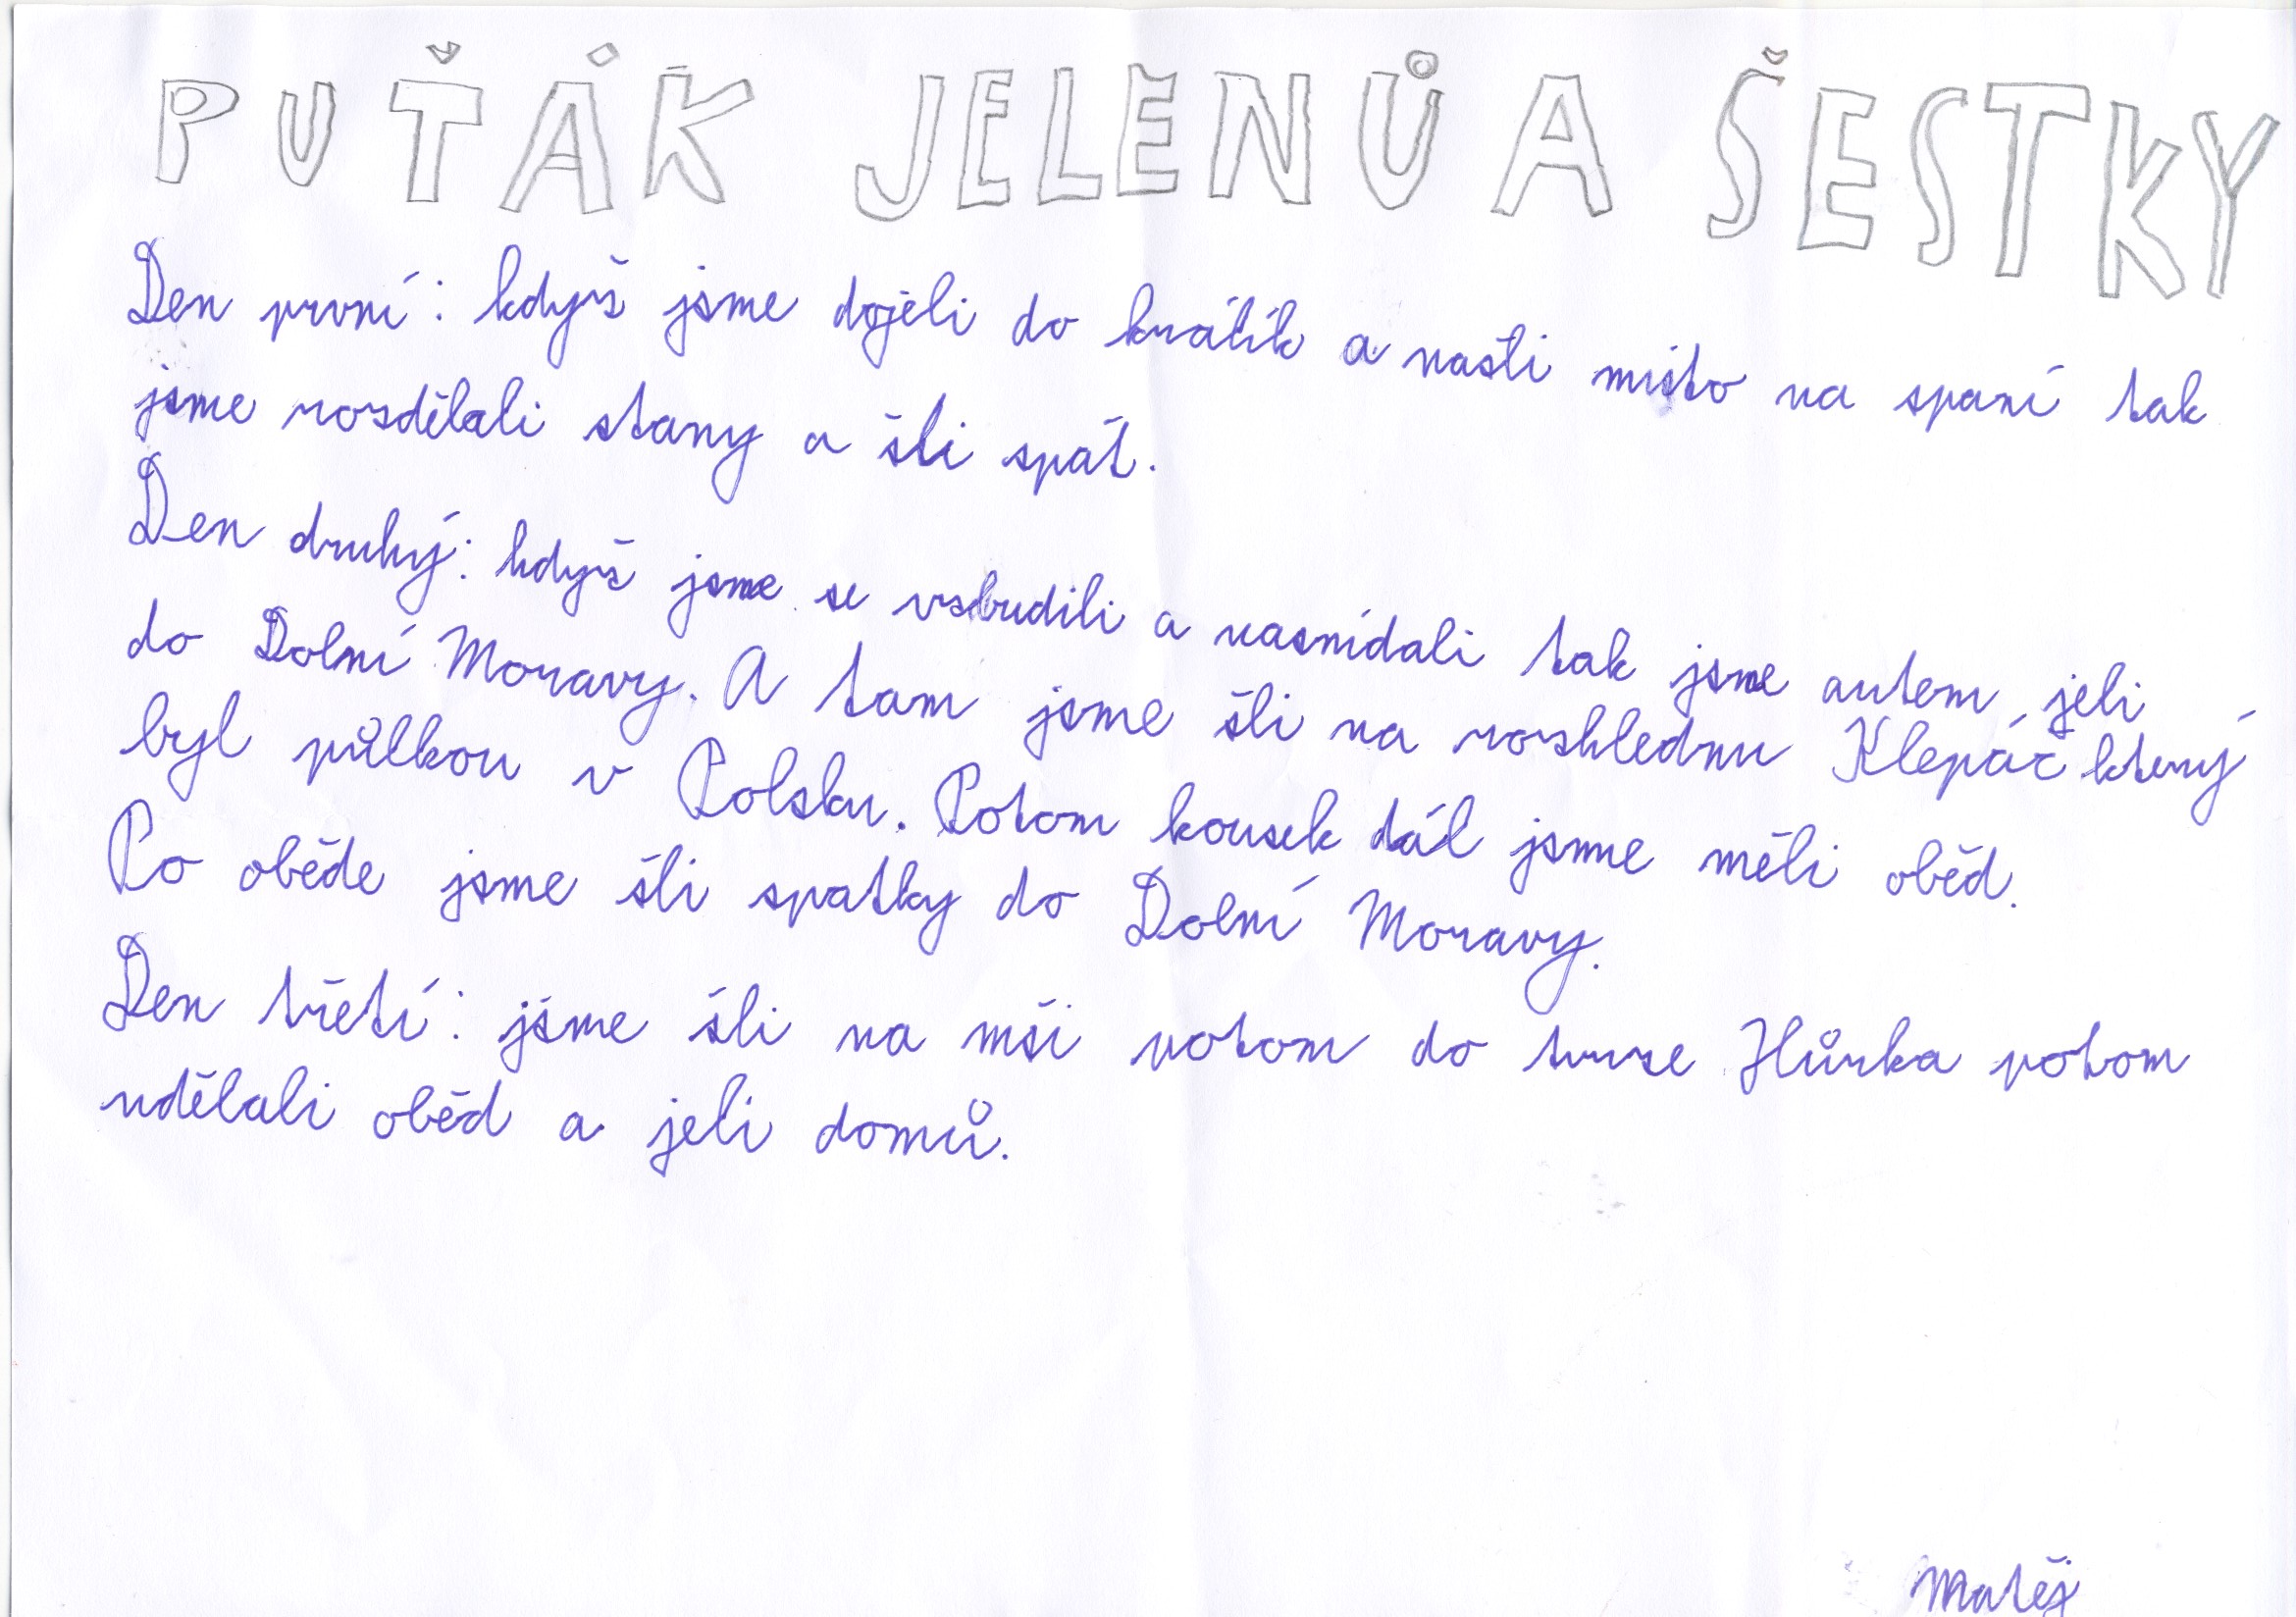 PUŤÁK JELENŮ A ŠESTKY
Den první: když jsme dojeli do králík a našli místo na spaní tak
jsme rozdělali stany a šli spát.
Den druhý: když jsme se vzbudili a nasnídali tak jsme autem jeli
do Dolní Moravy. A tam jsme šli na rozhlednu Klepáč který
byl půlkou v Polsku. Potom kousek dál jsme měli oběd.
Po oběde jsme šli spatky do Dolní Moravy.
Den třetí: jsme šli na mši potom do tvrze Hůrka potom
udělali oběd a jeli domů.
Matěj